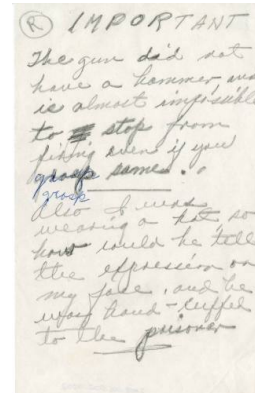 R IMPORTANT
The gun did not
have a hammer, and
is almost impossible
to stop from
firing even if you
grasp same.
grasp
Also I was
wearing a hat, so
how could he tell
the expression on
my face, and he
was hand-cuffed
to the prisoner